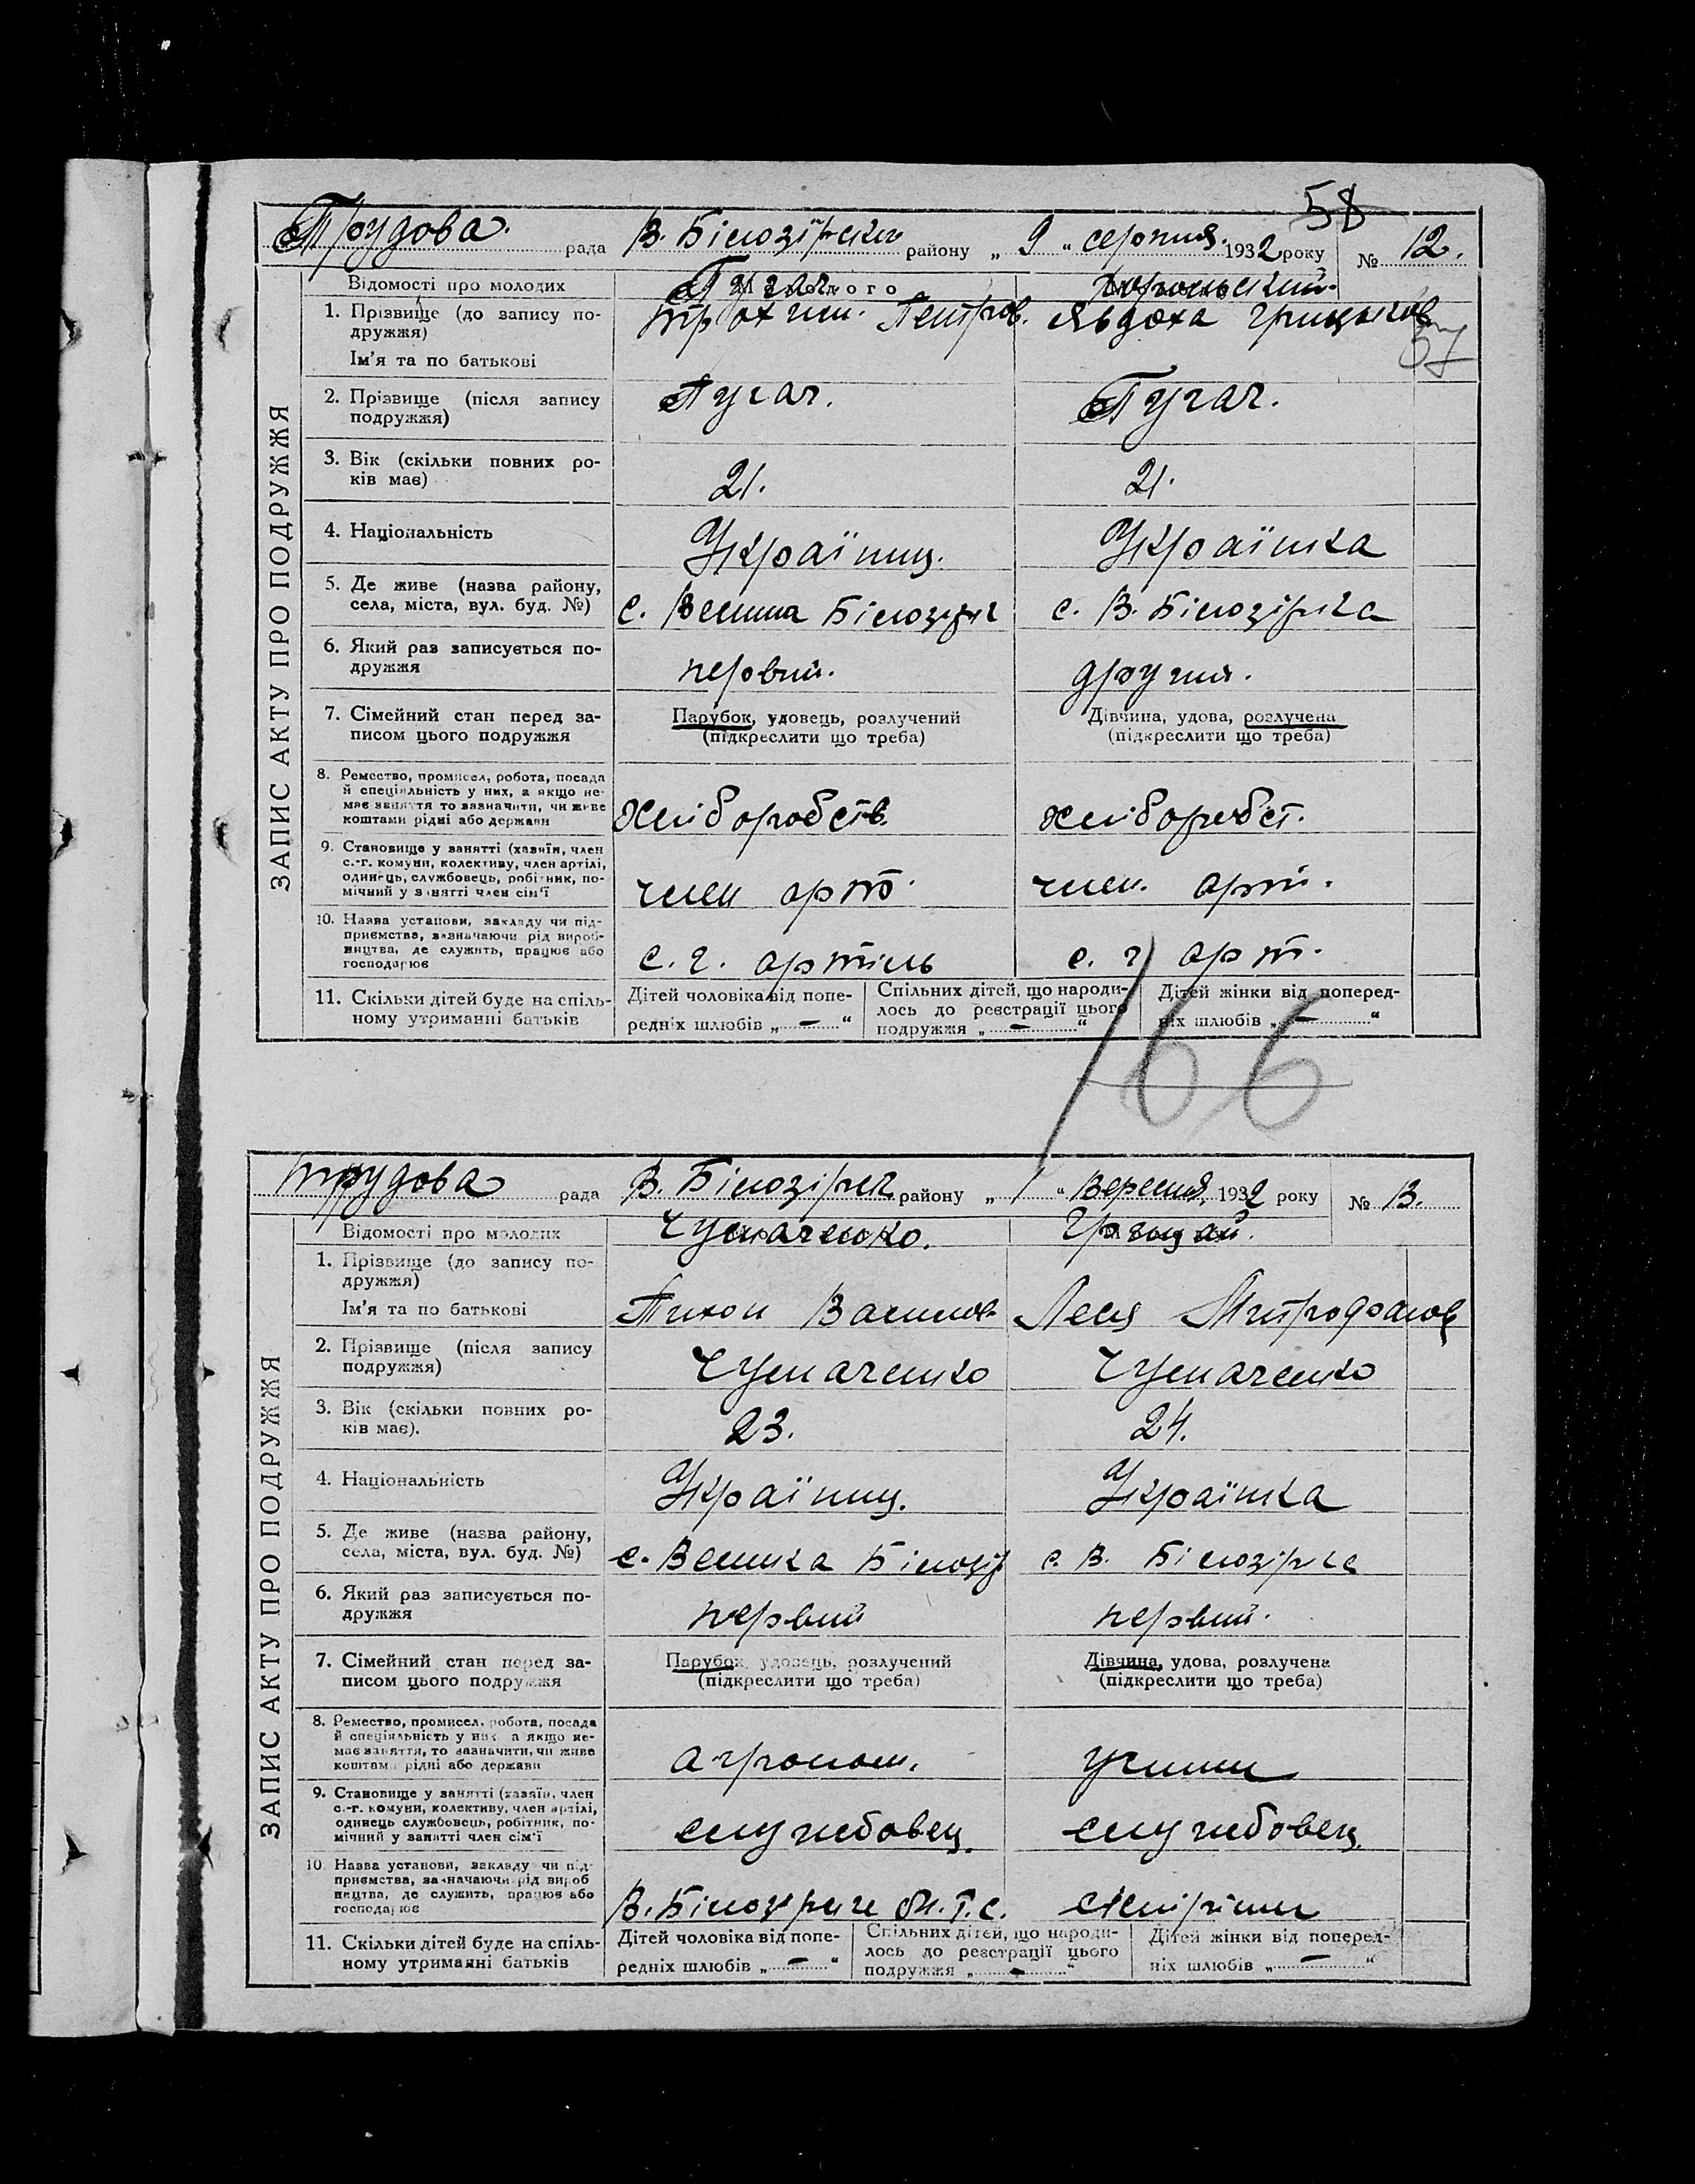 58
Трудова. рада В. Білозірськ району „ 9 “ серпня 1932 року № 12.
57
ЗАПИС АКТУ ПРО ПОДРУЖЖЯ
Відомості про молодих Пугач
1. Прізвище (до запису подружжя) Трохим. Петров. Явдоха Грицьков
Ім'я та по батькові
2. Прізвище (після запису подружжя) Пугач. Пугач.
3. Вік (скільки повних років має) 21. 21.
4. Національність Українц. Українка
5. Де живе (назва району, села, міста, вул. буд. №) с. Велика Білозірк с. В. Білозірка
6. Який раз записується подружжя первий. другий.
7. Сімейний стан перед записом цього подружжя Парубок, удовець, розлучений (підкреслити що треба) Дівчина, удова, розлучена (підкреслити що треба)
8. Ремество, промисел, робота, посада й спеціяльність у них, а якщо немає заняття то зазначити, чи живе коштами рідні або держави хліборобств. хлібороб​ст.
9. Становище у занятті (хазяїн, член с.-г. комуни, колективу, член артілі, одинець, службовець, робітник, помічний у занятті член сім'ї член арт. член. арт.
10. Назва установи, закладу чи підприємства, зазначаючи рід виробництва, де служить, працює або господарює с. г. артіль с. г. арт.
11. Скільки дітей буде на спільному утриманні батьків Дітей чоловіка від попередніх шлюбів „ — “ Спільних дітей, що народилось до реєстрації цього подружжя „ — “ Дітей жінки від попередніх шлюбів „ — “
66
Трудова рада В. Білозірк району „ 1 “ Вересня 1932 року № 13.
ЗАПИС АКТУ ПРО ПОДРУЖЖЯ
Відомості про молодих Чумаченко. Грицай.
1. Прізвище (до запису подружжя)
Ім'я та по батькові Тихон Василов Леся Митрофанов
2. Прізвище (після запису подружжя) Чумаченко Чумаченко
3. Вік (скільки повних років має). 23. 24.
4. Національність Українц. Українка
5. Де живе (назва району, села, міста, вул. буд. №) с. Велика Білозір с. В. Білозірка
6. Який раз записується подружжя первий первий.
7. Сімейний стан перед записом цього подружжя Парубок, удовець, розлучений (підкреслити що треба) Дівчина, удова, розлучена (підкреслити що треба)
8. Ремество, промисел, робота, посада й спеціяльність у них, а якщо немає заняття, то зазначити, чи живе коштами рідні або держави агроном.
9. Становище у занятті (хазяїн, член с.-г. комуни, колективу, член артілі, одинець службовець, робітник, помічний у занятті член сім'ї службовец. службовец.
10. Назва установи, закладу чи підприємства, зазначаючи рід виробництва, де служить, працює або господарює В. Білозірк
11. Скільки дітей буде на спільному утриманні батьків Дітей чоловіка від попередніх шлюбів „ — “ Спільних дітей, що народилось до реєстрації цього подружжя „ — “ Дітей жінки від попередніх шлюбів „ — “